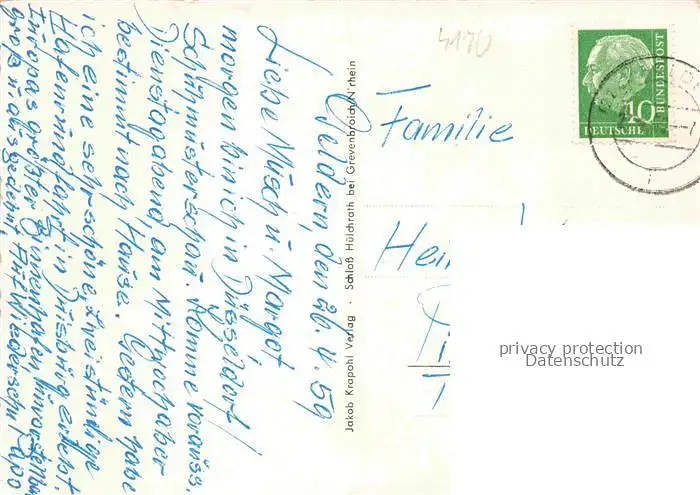 Geldern, den 26. 4. 59
Liebe Müsch u. Margot
morgen bin ich in Düsseldorf/
Schuhmusterschau. Komme vorauss.
Dienstagabend, am Mittwoch aber
bestimmt nach Hause. Gestern habe
ich eine sehr schöne zweistündige
Hafenrundfahrt in Duisburg erlebt.
Europas größter Binnenhafen, unvorstellbar
groß u. ausgedehnt. Auf Wiedersehn Papa
Jakob Krapohl Verlag · Schloß Hülchrath bei Grevenbroich/N'rhein
4170
Familie
Hei
DEUTSCHE
BUNDESPOST
10
privacy protection
Datenschutz